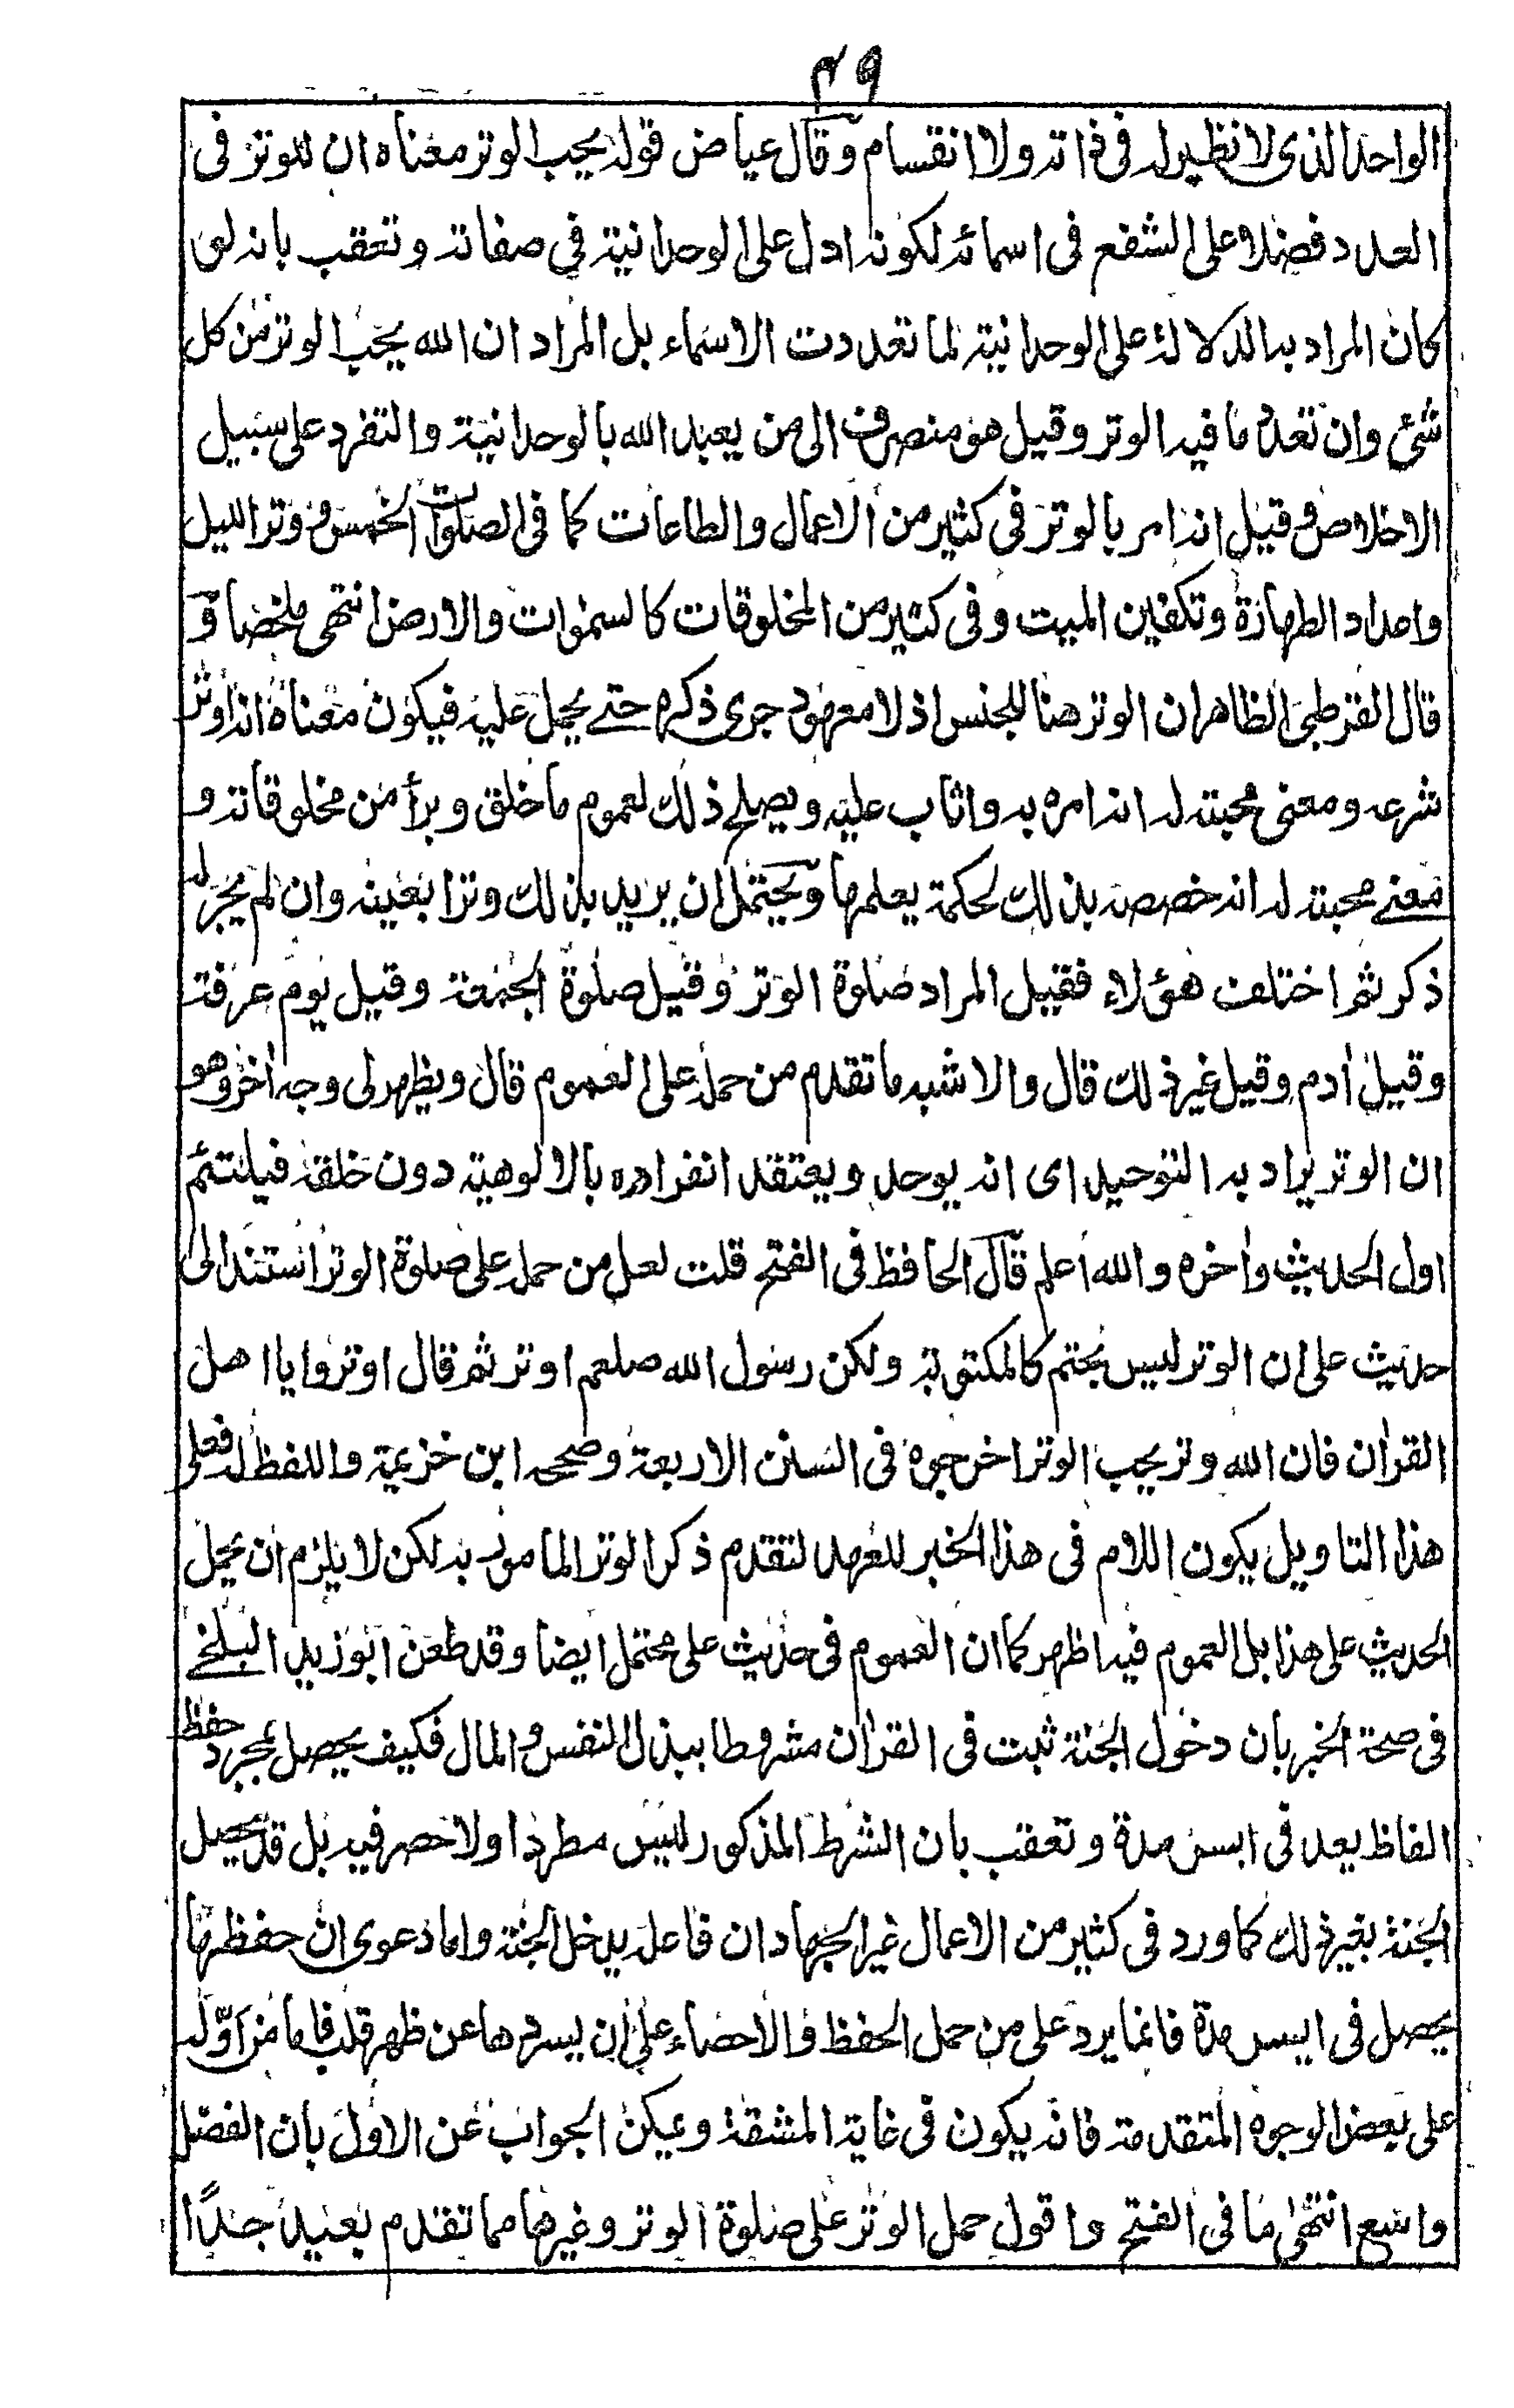 ٤٩
الواحد الذى لا نظير له فى ذاته ولا انقسام وقال عياض قوله يحب الوتر معناه ان للوتر فى
العدد فضلا على الشفع فى اسمائه لكونه ادل على الوحدانية في صفاته وتعقب بانه لو
كان المراد به الدلالة على الوحدانية لما تعددت الاسماء بل المراد ان الله يحب الوتر من كل
شئ وان تعدد ما فيه الوتر وقيل هو منصرف الى من يعبد الله بالوحدانية والتفرد على سبيل
الاخلاص وقيل انه امر بالوتر فى كثير من الاعمال والطاعات كما فى الصلوات الخمس ووتر الليل
واعداد الطهارة وتكفين الميت وفى كثير من المخلوقات كالسموات والارض انتهى ملخصا و
قال القرطبى الظاهر ان الوتر هنا للجنس اذ لا معهود جرى ذكره حتے يحمل عليه فيكون معناه انه وتر
شرعه ومعنى محبته له انه امره به واثاب عليه ويصلح ذلك لعموم ما خلق وبرأ من مخلوقاته و
معنے محبته له انه خصصه بذلك لحكمة يعلمها ويحتمل ان يريد بذلك وترا بعينه وان لم يجر له
ذكر ثم اختلف هؤلاء فقيل المراد صلوة الوتر وقيل صلوة الجمعة وقيل يوم عرفة
وقيل آدم وقيل غير ذلك قال والاشبه ما تقدم من حمله على العموم قال ويظهر لى وجه آخر وهو
ان الوتر يراد به التوحيد اى انه يوحد ويعتقد انفراده بالالوهية دون خلقه فيلتئم
اول الحديث وآخره والله اعلم قال الحافظ فى الفتح قلت لعل من حمله على صلوة الوتر استند الى
حديث على ان الوتر ليس بحتم كالمكتوبة ولكن رسول الله صلعم اوتر ثم قال اوتروا يا اهل
القران فان الله وتر يحب الوتر اخرجوه فى السنن الاربعة وصححه ابن خزيمة واللفظ له فعلى
هذا التاويل يكون اللام فى هذا الخبر للعهد لتقدم ذكر الوتر المامور به لكن لا يلزم ان يحمل
الحديث على هذا بل العموم فيه اظهر كما ان العموم فى حديث على محتمل ايضا وقد طعن ابو زيد البلخے
فى صحة الخبر بان دخول الجنة ثبت فى القران مشروطا ببذل النفس والمال فكيف يحصل بمجرد حفظ
الفاظ يعد فى ايسر مدة وتعقب بان الشرط المذكور ليس مطردا ولا حصر فيه بل قد يحصل
الجنة بغير ذلك كما ورد فى كثير من الاعمال غير الجهاد ان فاعله يدخل الجنة واما دعوى ان حفظها
يحصل فى ايسر مدة فانما يرد على من حمل الحفظ والاحصاء على ان يسردها عن ظهر قلب فاما من اوّله
على بعض الوجوه المتقدمة فانه يكون فى غاية المشقة ويمكن الجواب عن الاول بان الفضل
واسع انتهى ما فى الفتح واقول حمل الوتر على صلوة الوتر وغيرها مما تقدم بعيد جدًا